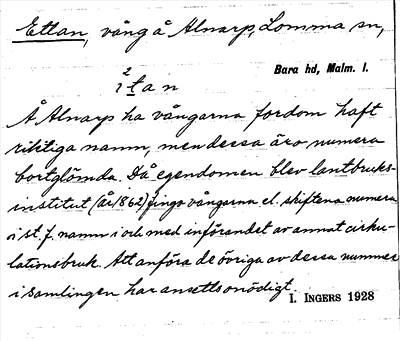 Ettan, vång å Alnarp, Lomma sn,
Bara hd, Malm. l.
2
itan
Å Alnarp ha vångarna fordom haft
riktiga namn, men dessa äro numera
bortglömda. Då egendomen blev lantbruks-
institut (år 1862) fingo vångarna el. skiftena numera
i st. f. namn i och med införandet av annat cirku-
lationsbruk. Att anföra de övriga av dessa nummer
i samlingen har ansetts onödigt.
I. INGERS 1928